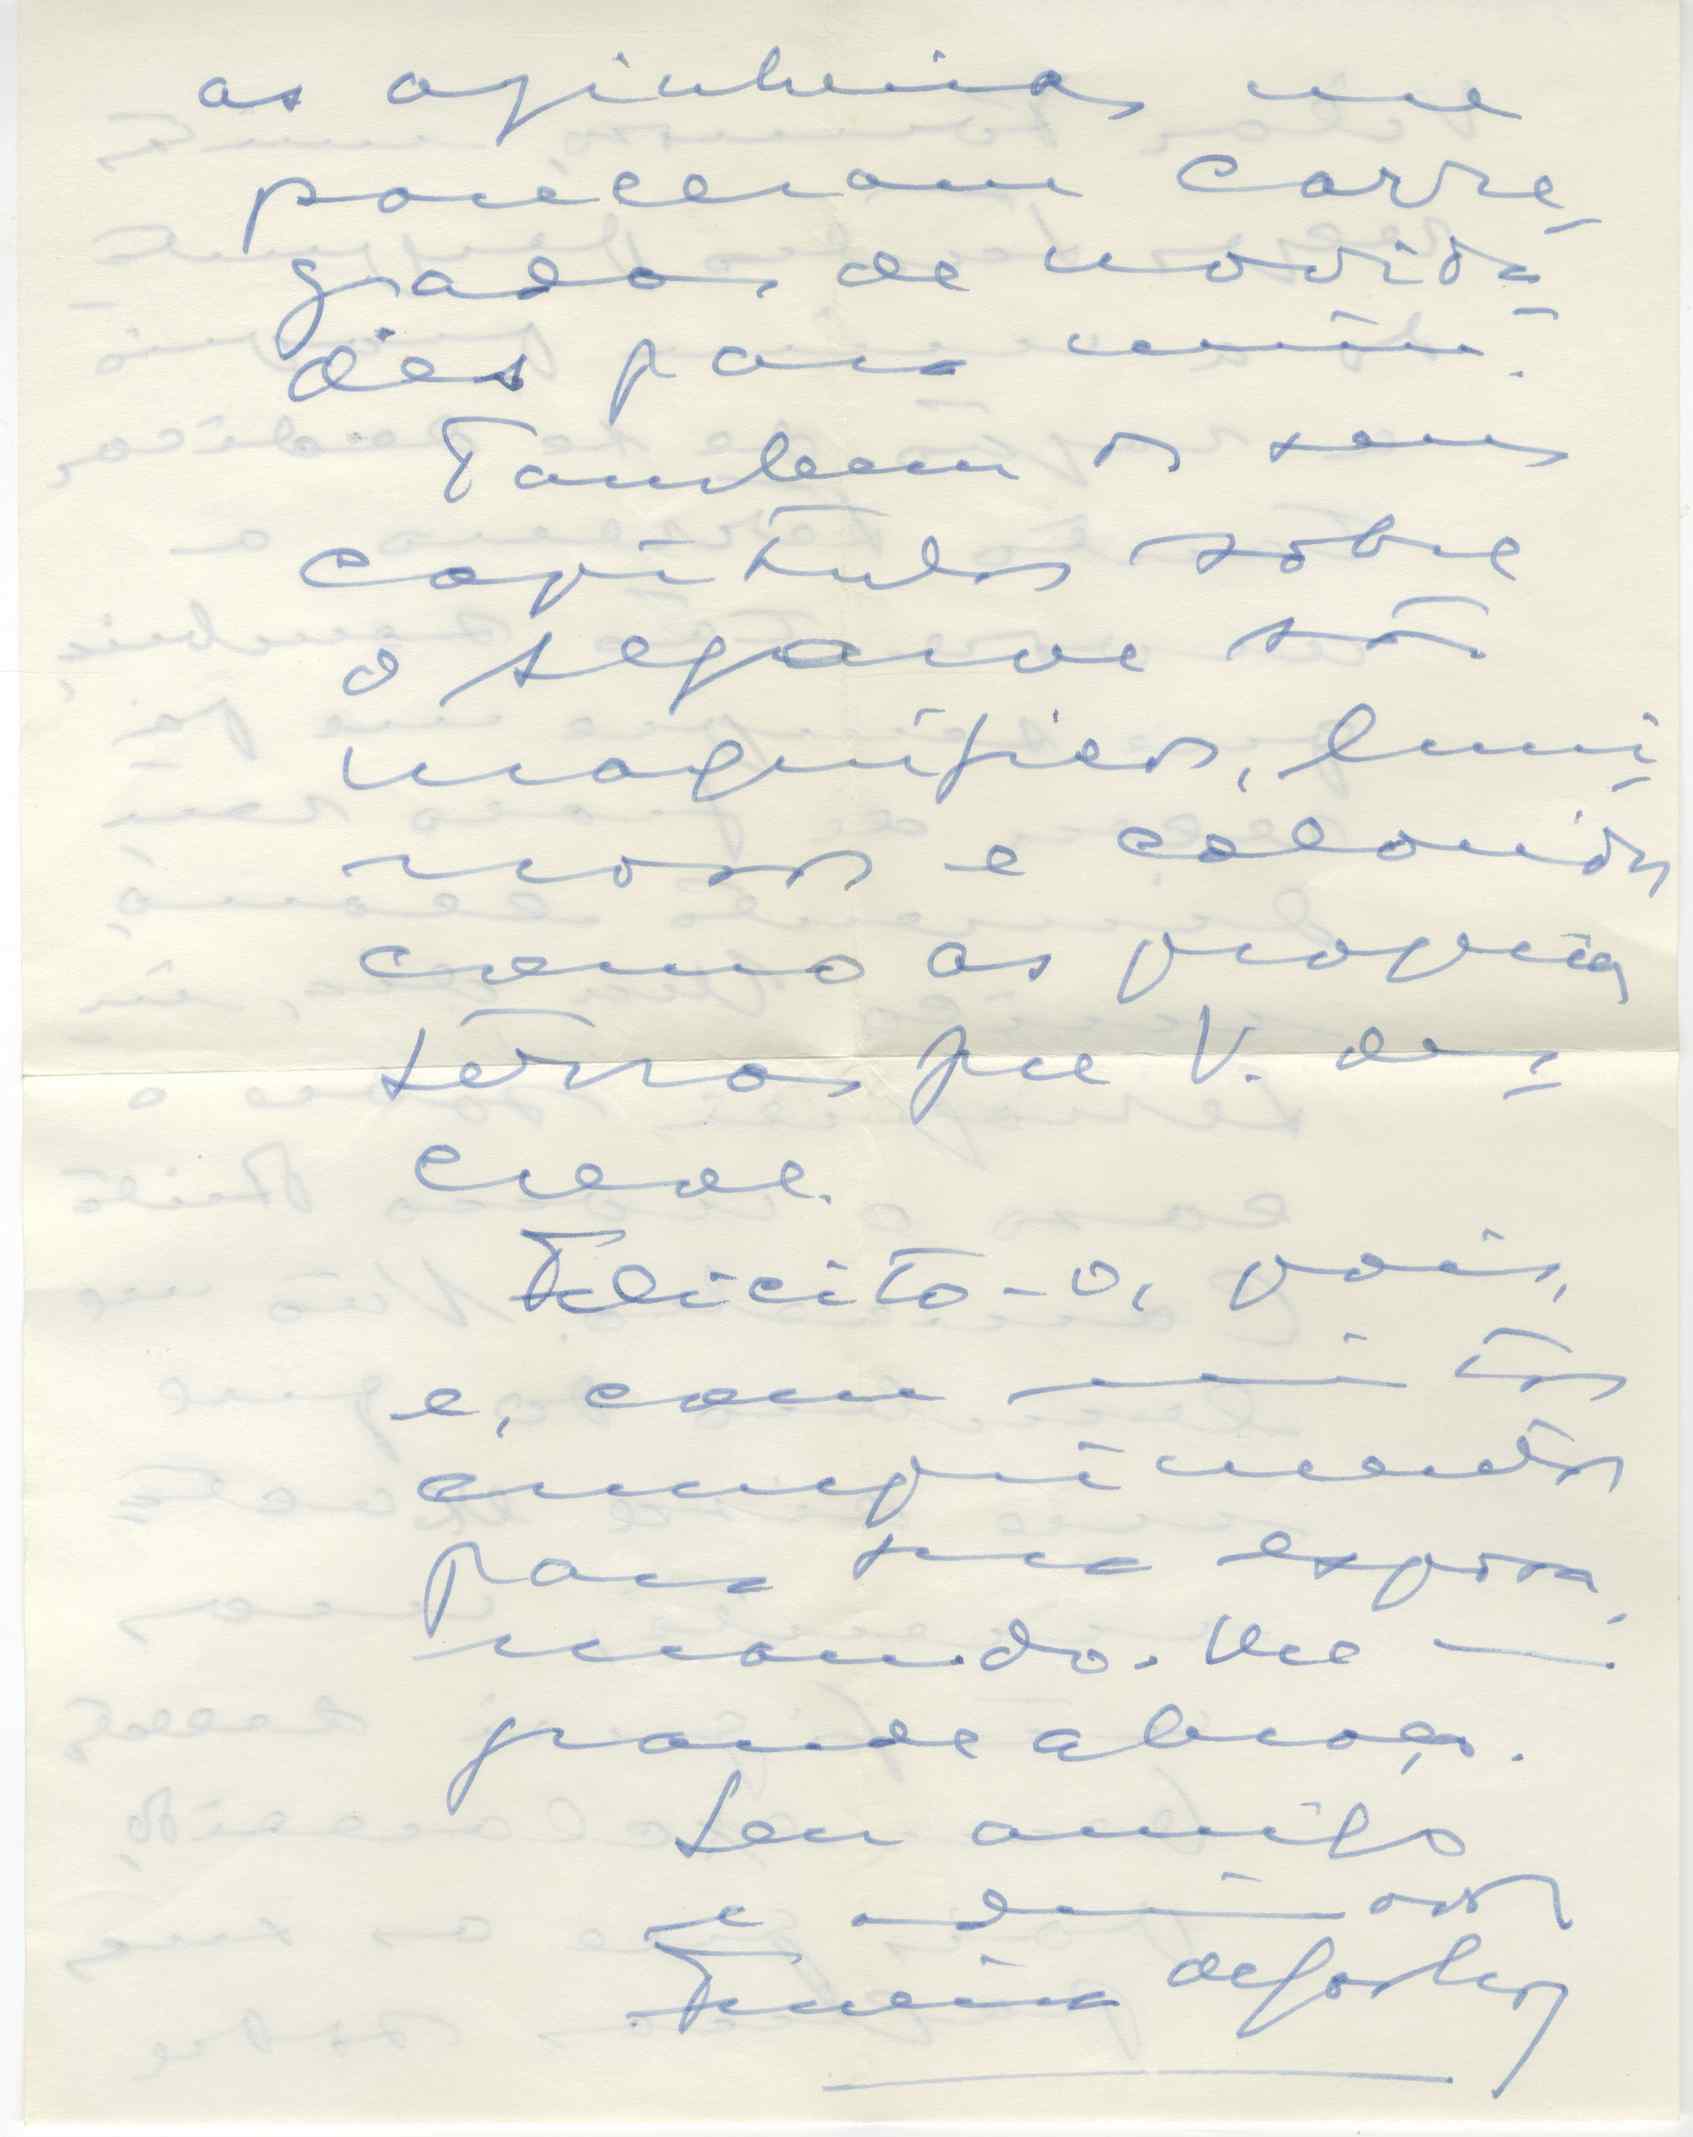 as azinheiras me
pareceram carre-
gadas de novida-
des para mim.
Tambem os seus
capitulos sobre
o Algarve são
magnificos, lumi-
nosos e coloridos
como as proprias
terras que V. des-
creve.
Felicito-o, pois,
e, com muitos
cumprimentos
para sua esposa,
mando-lhe um
grande abraço.
Seu amigo
e admirador
Ferreira de Castro